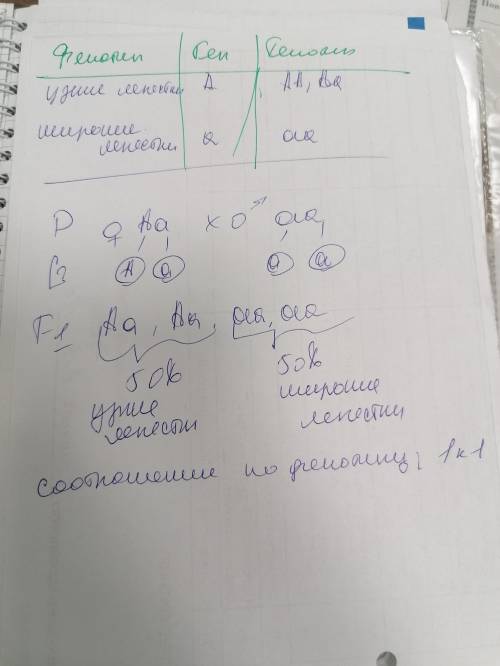 Фенотип Ген Генотип
узкие лепестки А АА, Аа
широкие
лепестки а аа
P ♀ Аа х ♂ аа
G А а а а
F1 Аа, Аа, аа, аа
50% 50%
узкие широкие
лепестки лепестки
соотношение по фенотипу 1 к 1